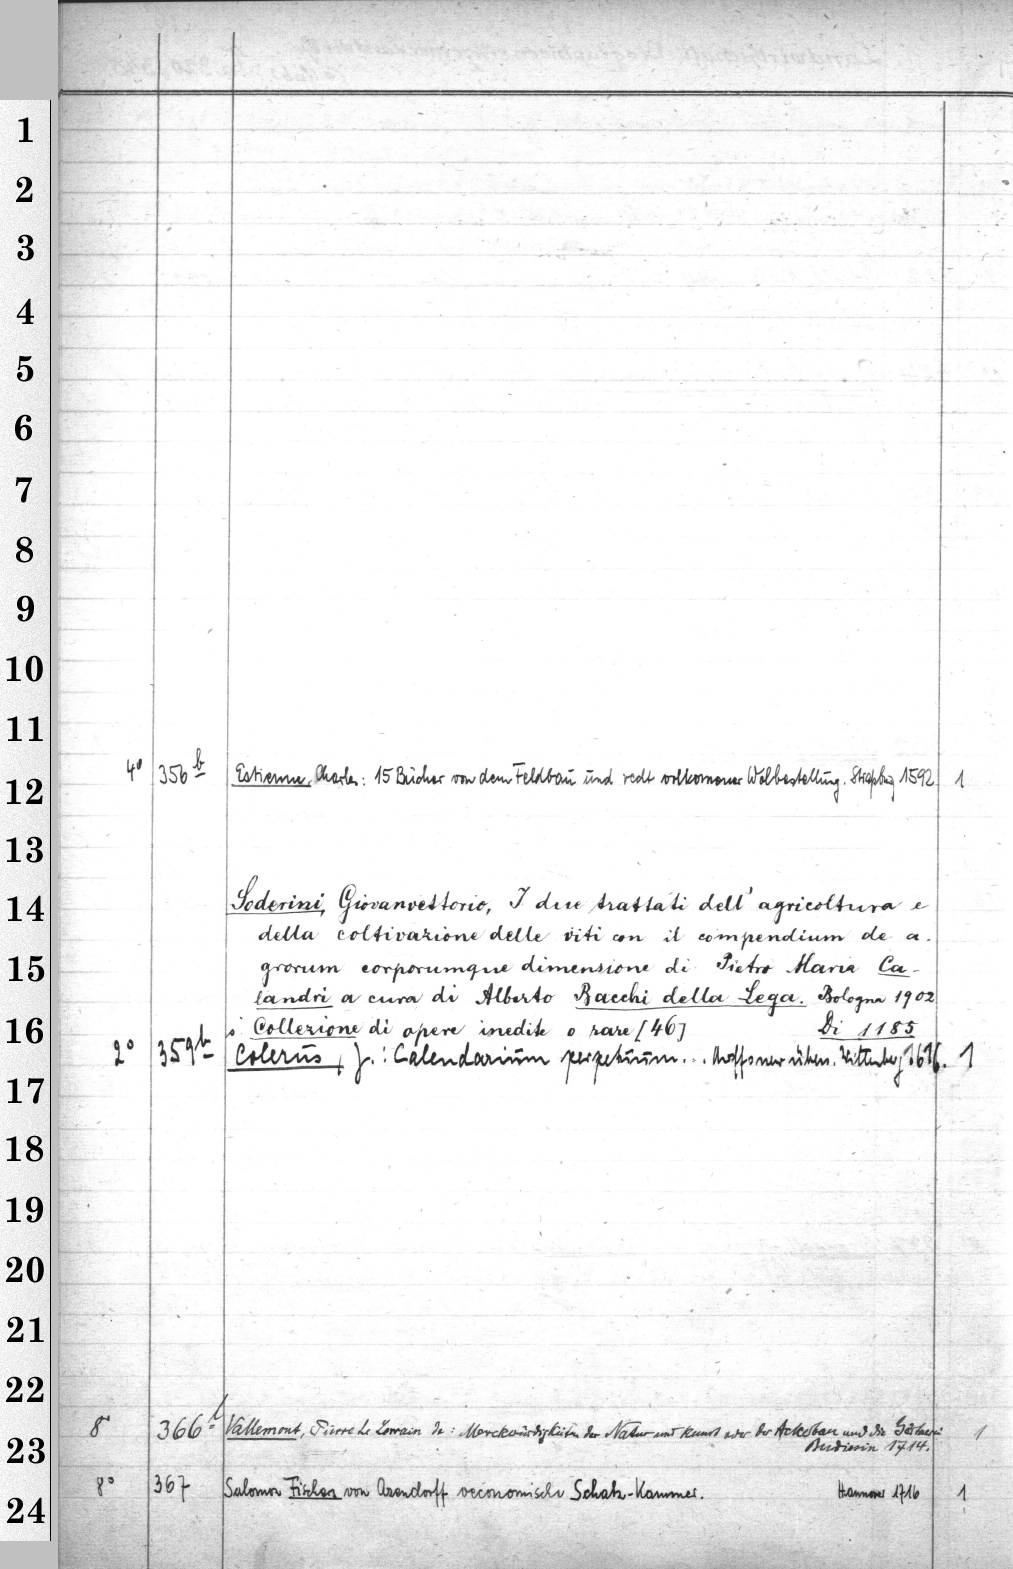 1
2
3
4
5
6
7
8
9
10
11
4° 356b Estienne, Charles: 15 Bücher von dem Feldbau und recht volkomener Wolbestellung. Straßburg 1592 1
12
13
Soderini, Giovanvettorio, I due trattati dell' agricoltura e
14
della coltivazione delle viti con il compendium de a-
15
grorum corporumque dimensione di Pietro Maria Ca-
landri a cura di Alberto Bacchi della Lega. Bologna 1902
16
s. Collezione di opere inedite o rare [46] Di 1185
2° 359b Colerus, J.: Calendarium perpetuum... Wittenberg 1616. 1
17
18
19
20
21
22
8° 366b Vallemont, Pierre Le Lorrain de: Merckwürdigkeiten der Natur und Kunst oder der Ackerbau und die Gärtnerei
23
Budissin 1714. 1
8° 367 Salomon Fischer von Arendorff oeconomische Schatz-Kammer. Hannover 1716 1
24